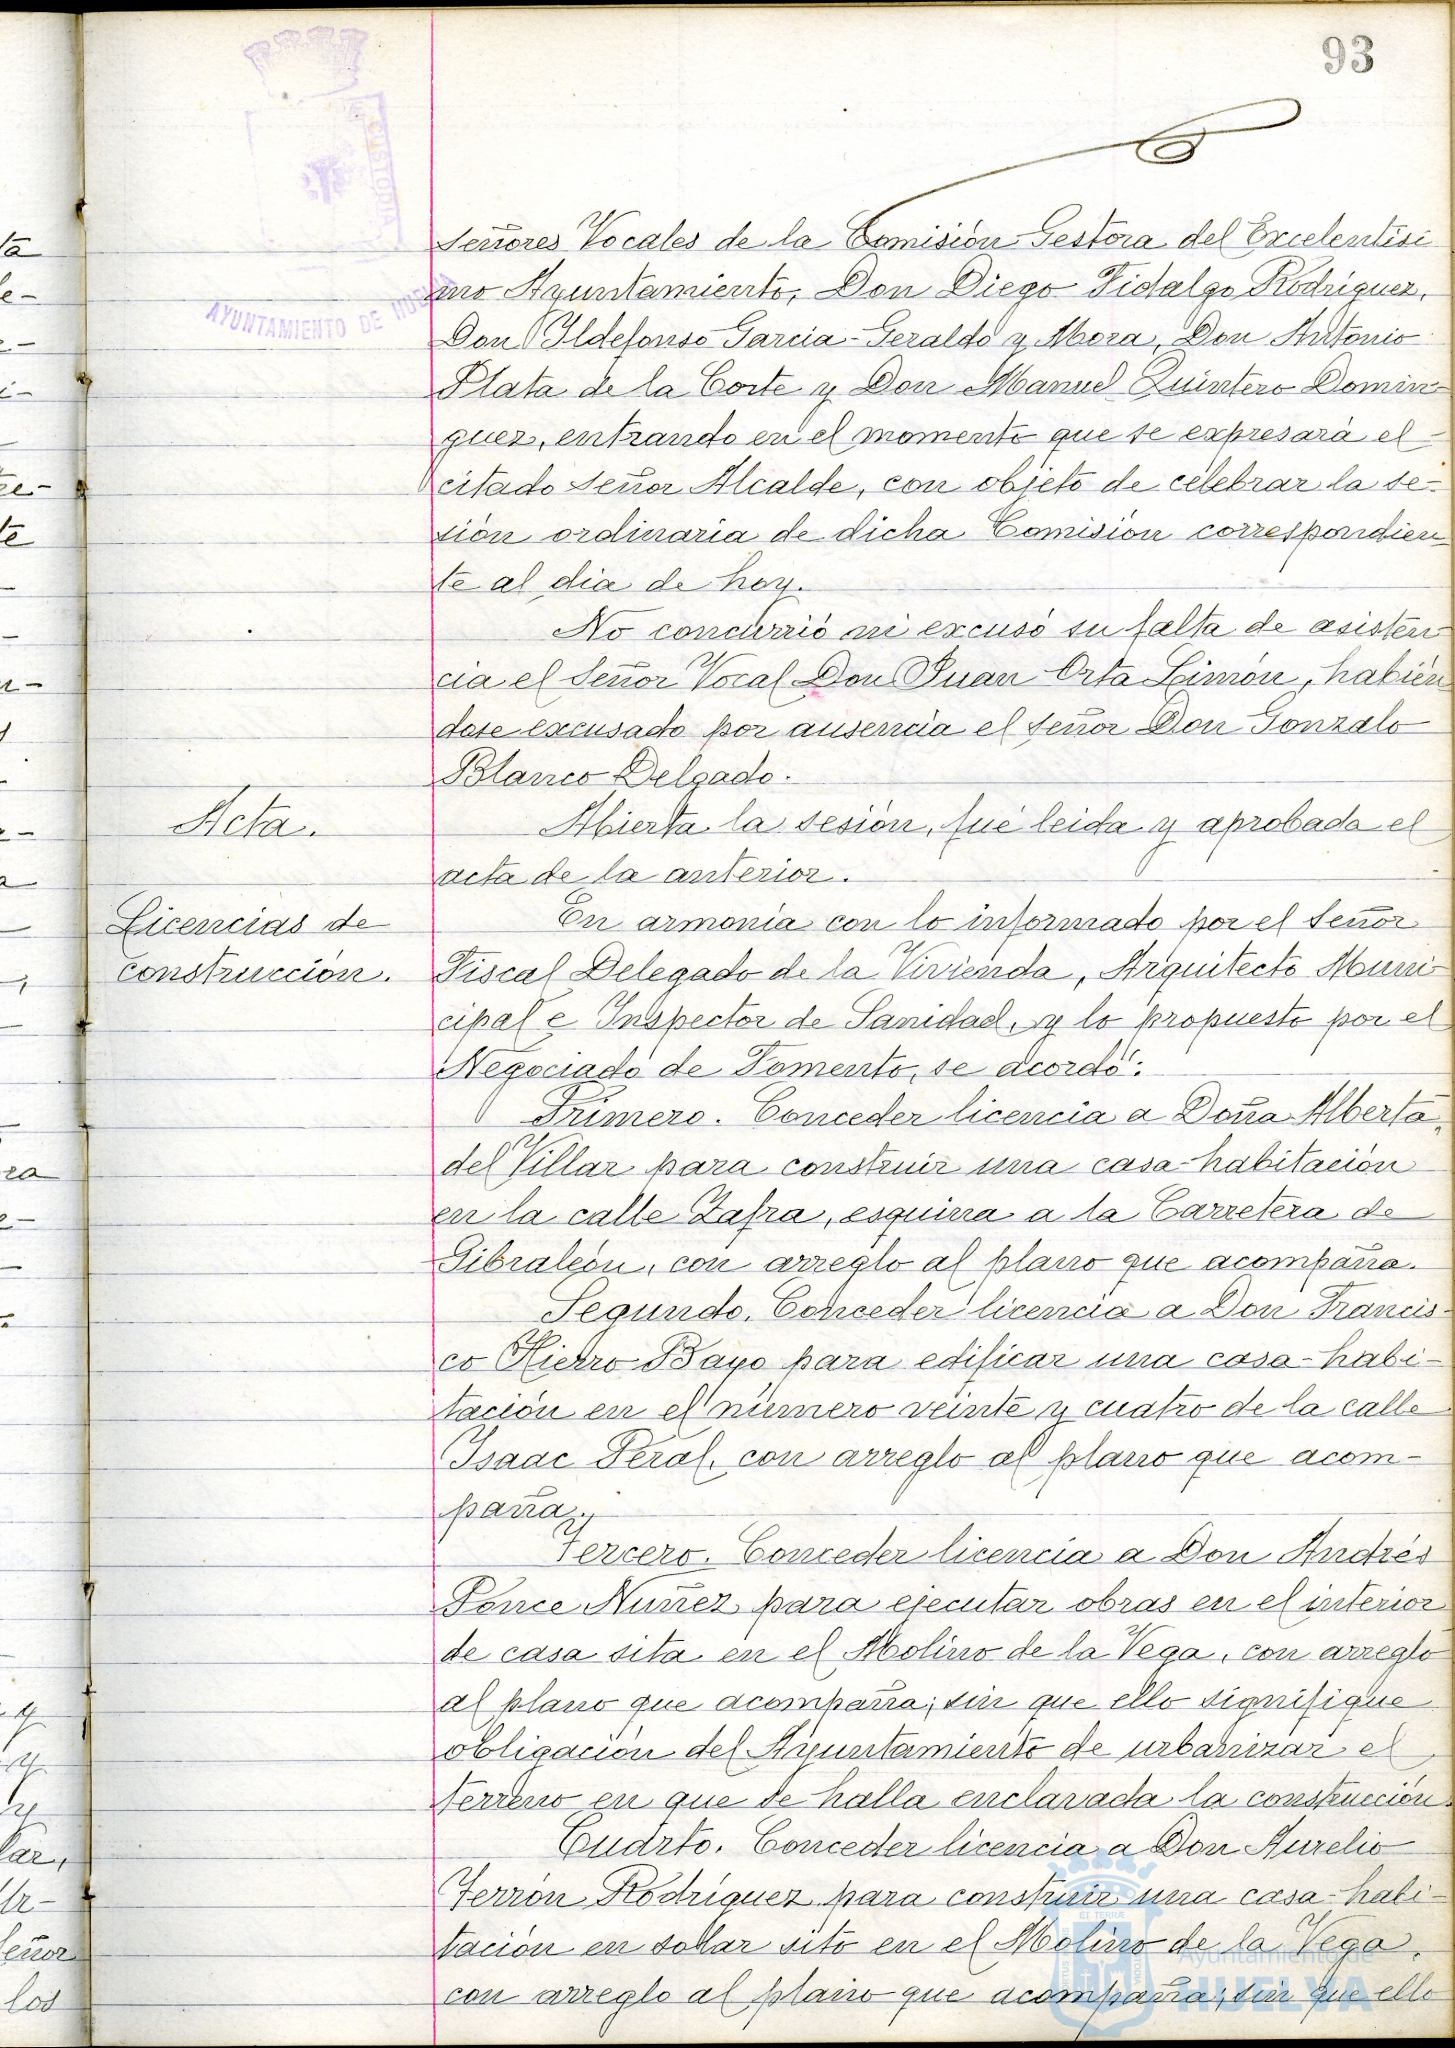 93
CUSTODIA
AYUNTAMIENTO DE HUELVA
señores Vocales de la Comisión Gestora del Excelentísi
mo Ayuntamiento, Don Diego Fidalgo Rodríguez,
Don Ildefonso Garcia-Geraldo y Mora, Don Antonio
Plata de la Corte y Don Manuel Quintero Domin-
guez, entrando en el momento que se expresará el
citado Señor Alcalde, con objeto de celebrar la se-
sión ordinaria de dicha Comisión correspondien-
te al dia de hoy.
No concurrió ni excusó su falta de asisten-
cia el Señor Vocal Don Juan Orta Limón, habién
dose excusado por ausencia el señor Don Gonzalo
Blanco Delgado.
Acta.
Abierta la sesión, fué leida y aprobada el
acta de la anterior.
Licencias de
construcción.
En armonía con lo informado por el Señor
Fiscal Delegado de la Vivienda, Arquitecto Muni-
cipal e Inspector de Sanidad, y lo propuesto por el
Negociado de Fomento, se acordó:
Primero. Conceder licencia a Doña Alberta
del Villar para construir una casa-habitación
en la calle Zafra, esquina a la Carretera de
Gibraleón, con arreglo al plano que acompaña.
Segundo. Conceder licencia a Don Francis-
co Hierro Bayo para edificar una casa-habi-
tación en el número veinte y cuatro de la calle
Isaac Peral, con arreglo al plano que acom-
paña.
Tercero. Conceder licencia a Don Andrés
Ponce Nuñez para ejecutar obras en el interior
de casa sita en el Molino de la Vega, con arreglo
al plano que acompaña; sin que ello signifique
obligación del Ayuntamiento de urbanizar el
terreno en que se halla enclavada la construcción.
Cuarto. Conceder licencia a Don Aurelio
Ferrón Rodríguez para construir una casa-habi-
tación en solar sito en el Molino de la Vega,
con arreglo al plano que acompaña; sin que ello
Ayuntamiento de
HUELVA